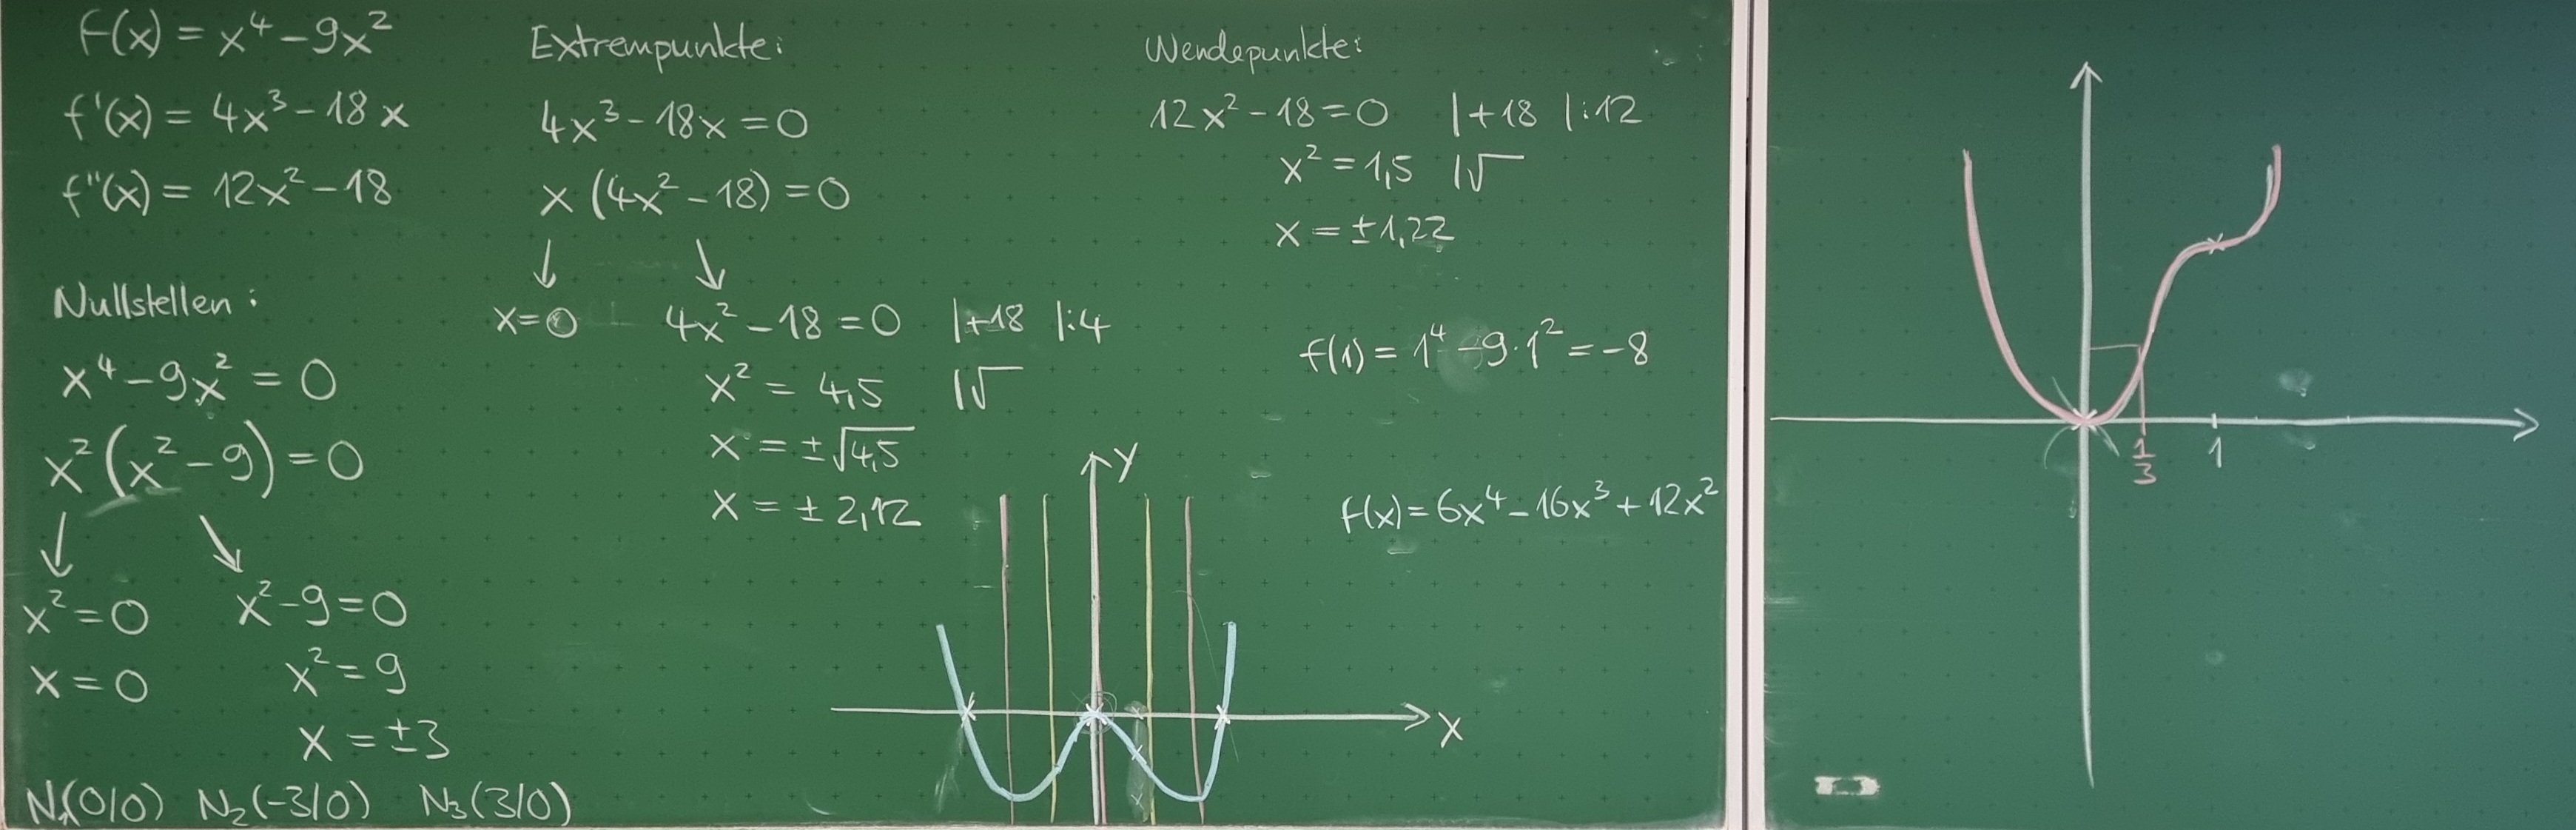 f(x) = x⁴ - 9x²
f'(x) = 4x³ - 18x
f''(x) = 12x² - 18
Nullstellen:
x⁴ - 9x² = 0
x² (x² - 9) = 0
x² = 0 x² - 9 = 0
x = 0 x² = 9
x = ±3
N₁(0|0) N₂(-3|0) N₃(3|0)
Extrempunkte:
4x³ - 18x = 0
x (4x² - 18) = 0
x = 0 4x² - 18 = 0 |+18 |:4
x² = 4,5 |√
x = ±√4,5
x = ± 2,12
y
x
Wendepunkte:
12x² - 18 = 0 |+18 |:12
x² = 1,5 |√
x = ±1,22
f(1) = 1⁴ - 9·1² = -8
f(x) = 6x⁴ - 16x³ + 12x²
1/3 1